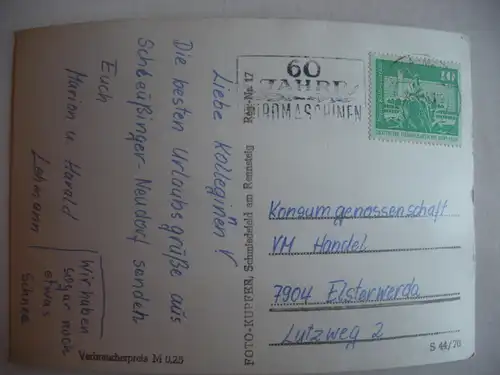 Liebe Kolleginnen!
Die besten Urlaubsgrüße aus
Schleußinger-Neudorf senden
Euch
Marion u. Harald
Lehmann
Wir haben
sogar noch
etwas
Schnee
Verbraucherpreis M 0,25
FOTO-KUPFER, Schmiedefeld am Rennsteig Reg.-Nr. 17
60
JAHRE
BÜROMASCHINEN
Konsumgenossenschaft
VM Handel
7904 Elsterwerda
Lutzweg 2
S 44/76